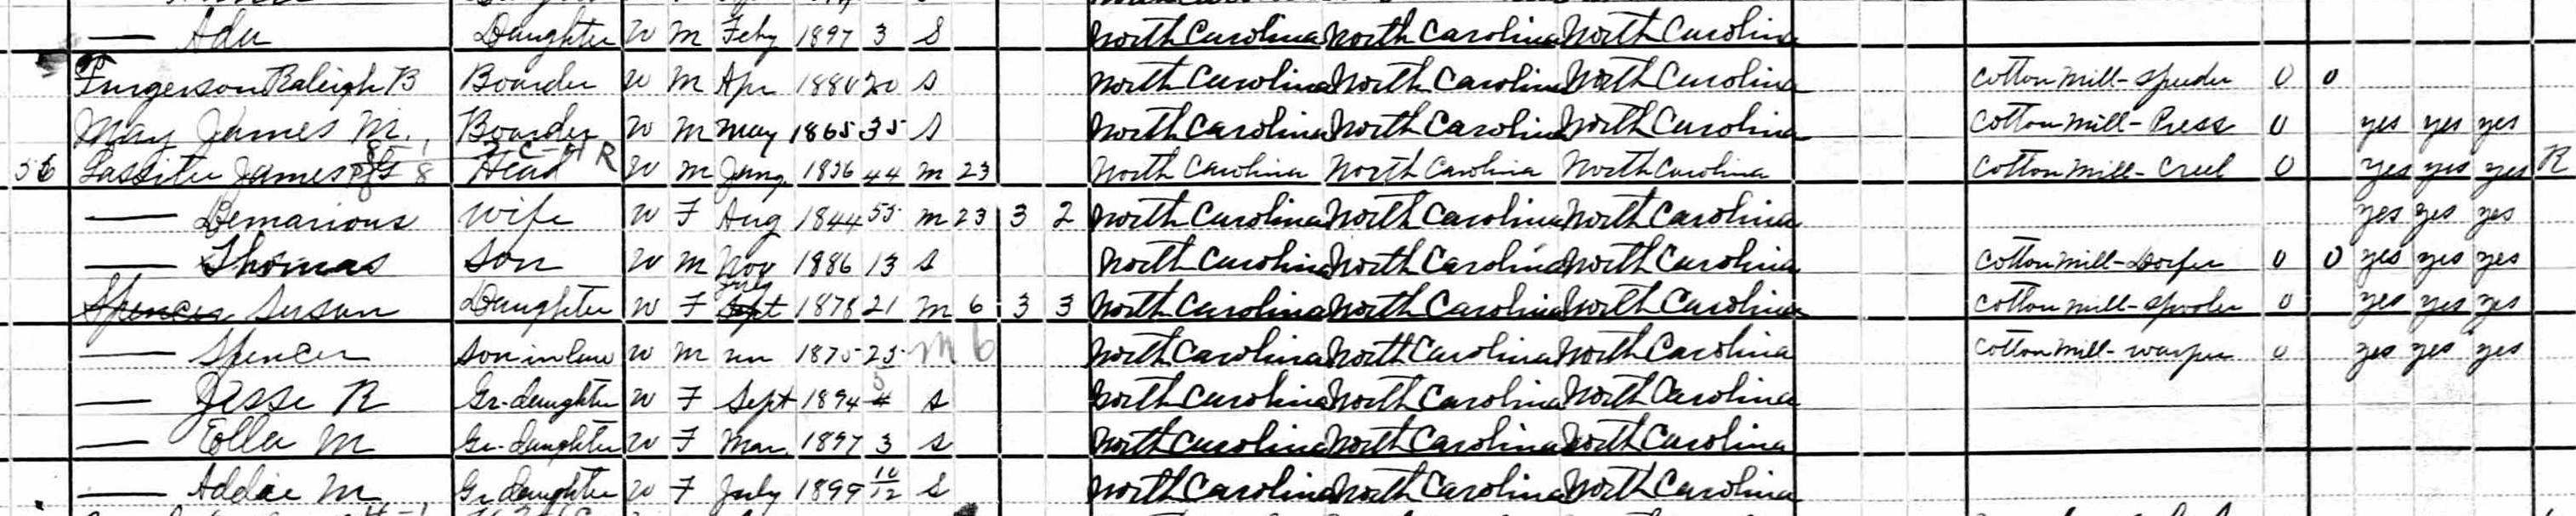 — Ada Daughter W M Feby 1897 3 S North Carolina North Carolina North Carolina
Furgerson Raleigh B Boarder W M Apr 1880 20 S North Carolina North Carolina North Carolina Cotton Mill - Speeder 0 0
May James M. Boarder W M May 1865 35 S North Carolina North Carolina North Carolina Cotton Mill - Press 0 yes yes yes
56 Lassiter James Head R W M Jany. 1856 44 M 23 North Carolina North Carolina North Carolina Cotton Mill - Creel 0 yes yes yes R
— Demarious Wife W F Aug 1844 55 M 23 3 2 North Carolina North Carolina North Carolina yes yes yes
— Thomas Son W M Nov 1886 13 S North Carolina North Carolina North Carolina Cotton Mill - Dofer 0 0 yes yes yes
Spencer Susan Daughter W F July Sept 1878 21 M 6 3 3 North Carolina North Carolina North Carolina Cotton Mill - Spooler 0 yes yes yes
— Spencer Son in law W M un 1875 25 M 6 North Carolina North Carolina North Carolina Cotton Mill - Warper 0 yes yes yes
— Jesse R Gr-daughter W F Sept 1894 5 S North Carolina North Carolina North Carolina
— Ella M Gr-daughter W F Mar. 1897 3 S North Carolina North Carolina North Carolina
— Addie M Gr daughter W F July 1899 10/12 S North Carolina North Carolina North Carolina